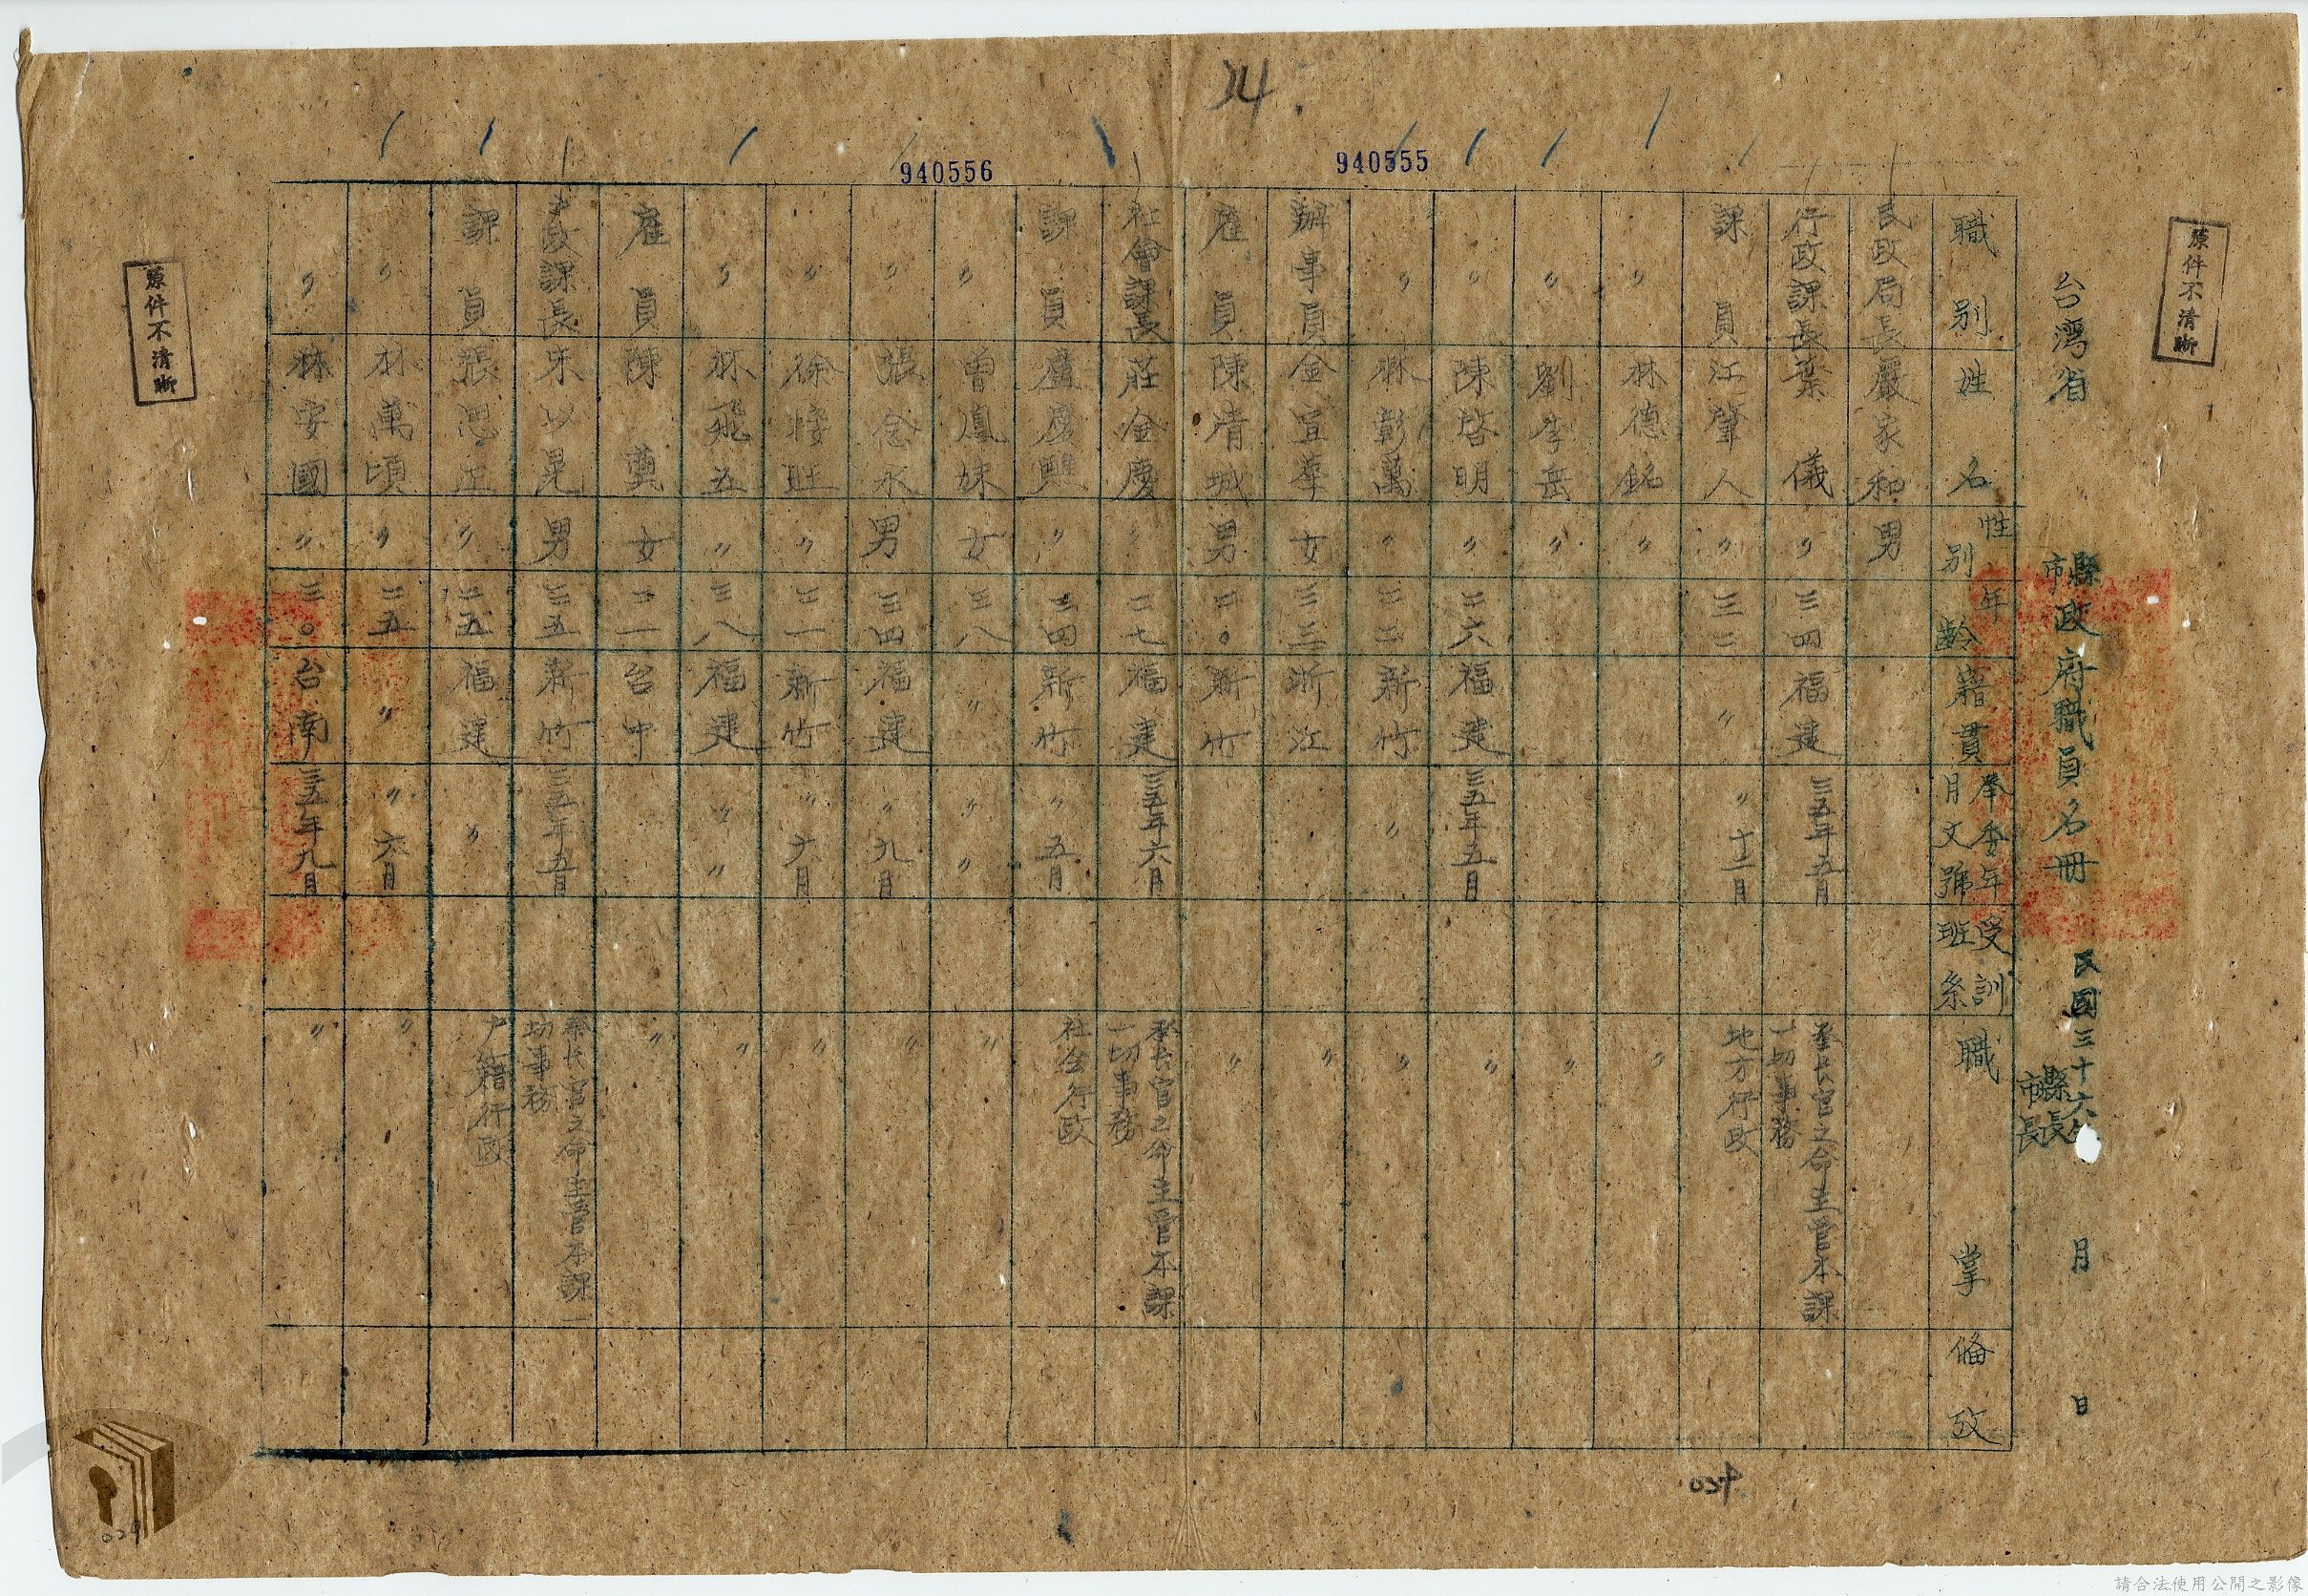 24.
940555
940556
原件不清晰
台灣省 縣市政府職員名冊 民國三十六年 月 日
縣長
市長
職別 姓名 性別 年齡 籍貫 奉委年月文號 受訓班系 職掌 備攷
民政局長 嚴家和 男
行政課長 葉儀 〃 三四 福建 三五年五月 承長官之命主管本課一切事務
課員 江肇人 〃 三二 〃 〃十二月 地方行政
〃 林德銘 〃 〃
〃 劉李岳 〃 〃
〃 陳啓明 〃 二六 福建 三五年五月 〃
〃 林彭萬 〃 三二 新竹 〃 〃
辦事員 金宣華 女 三三 浙江 〃
雇員 陳清城 男 二〇 新竹 〃
社會課長 莊金慶 〃 二七 福建 三五年六月 承長官之命主管本課一切事務
課員 盧慶興 〃 三四 新竹 〃五月 社会行政
〃 曾鳳妹 女 三八 〃 〃〃 〃
〃 張念永 男 三四 福建 〃九月 〃
〃 徐接旺 〃 三一 新竹 〃六月 〃
〃 林飛五 〃 三八 福建 〃〃 〃
雇員 陳 女 二一 台中 〃
户政課長 宋以晃 男 三五 新竹 三五年五月 承長官之命主管本課一切事務
課員 張思正 〃 二五 福建 〃 户籍行政
〃 林萬頃 〃 二五 〃 〃六月 〃
〃 林安國 〃 三〇 台南 三五年九月 〃
原件不清晰
024
029
請合法使用公開之影像